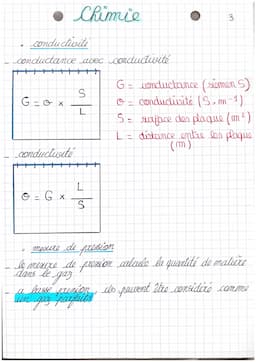 Chimie
3
• conductivité
_ conductance avec conductivité
G = σ × S/L
G = conductance (siémen S)
σ = conductivité (S.m⁻¹)
S = surface des plaque (m²)
L = distance entre les plaque
(m)
_ conductivité
σ = G × L/S
• mesure de pression
_ la mesure de pression calcule la quantité de matière
dans le gaz
_ a basse pression, ils peuvent être considéré comme
un gaz parfaits